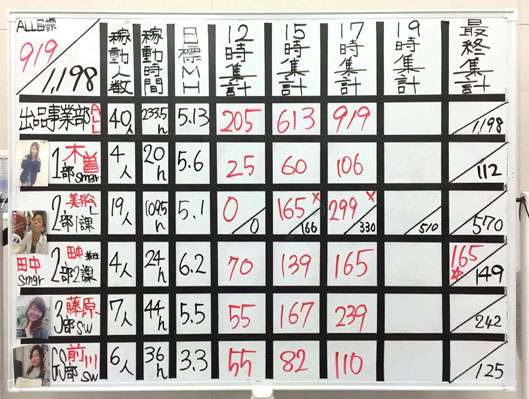 ALL目標
919
1,198
稼動人数
稼動時間
目標MH
12時集計
15時集計
17時集計
19時集計
最終集計
出品事業部 ALL 40人 233.5h 5.13 205 613 919 1,198
木曽
1部 smgr 4人 20h 5.6 25 60 106 112
2部1課 19人 109.5h 5.1 0 0 165 166 299 330 510 570
田中
smgr
2部2課 4人 24h 6.2 70 139 165 165 149
藤原
3部 SW 7人 44h 5.5 55 167 239 242
前川
SW 6人 36h 3.3 55 82 110 125